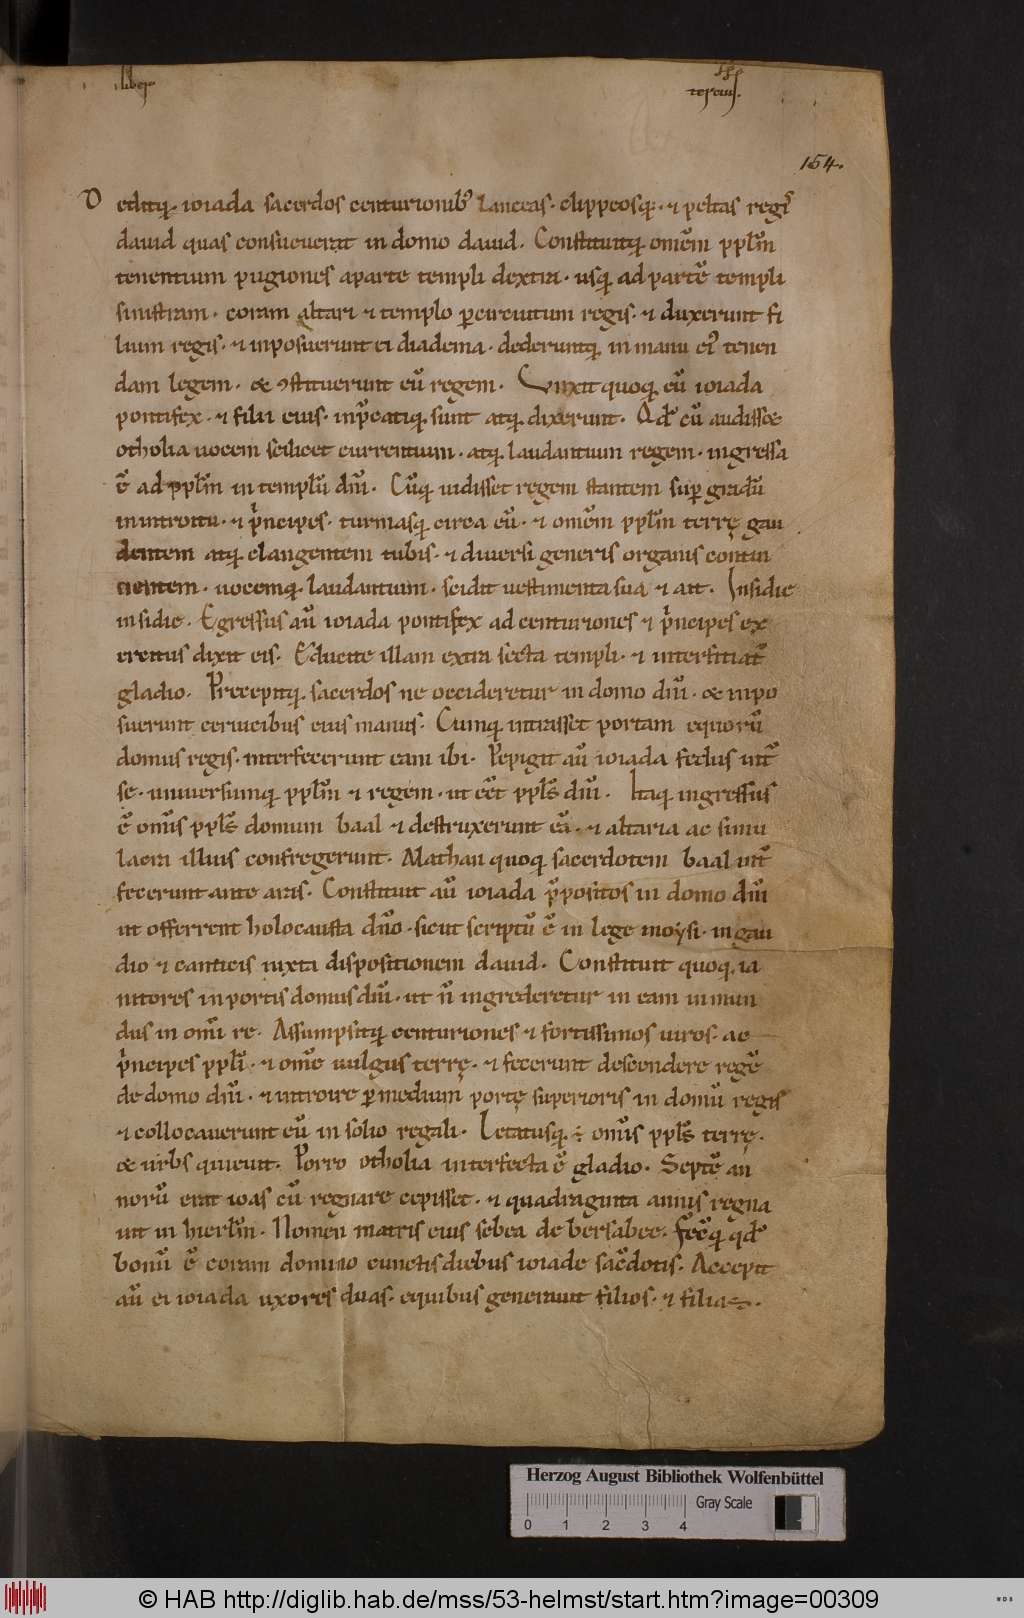 liber
tercius.
154.
Deditq; ioiada sacerdos centurionib' lanceas. clippeosq;. ⁊ peltas regis
dauid quas consueuerat in domo dauid. Constituitq; omēm ppl̄m
tenentium pugiones aparte templi dextra. usq; ad partē templi
sinistram. coram altari ⁊ templo ꝑcircuitum regis. ⁊ duxerunt fi
lium regis. ⁊ inposuerunt ei diadema. dederuntq; in manu ei' tenen
dam legem. & ꝯstituerunt eū regem. Vnxit quoq; eū ioiada
pontifex. ⁊ filii eius. inp̄catiq; sunt atq; dixerunt. Qd̄ cū audisset
otholia uocem scilicet currentium. atq; laudantium regem. ingressa
ē ad ppl̄m in templū dn̄i. Cūq; uidisset regem stantem sup gradū
inintroitu. ⁊ p̍ncipes. turmasq; circa eū. ⁊ omēm ppl̄m terrę gau
dentem atq; clangentem tubis. ⁊ diuersi generis organis concin
nentem. uocemq; laudantium. scidit uestimenta sua ⁊ ait. Insidie
insidie. Egressus aū ioiada pontifex ad centuriones ⁊ p̍ncipes ex
ercitus dixit eis. Educite illam extra septa templi. ⁊ interfitiat̄
gladio. Precepitq; sacerdos ne occideretur in domo dn̄i. & inpo
suerunt ceruicibus eius manus. Cumq; intrasset portam equorū
domus regis. interfecerunt eam ibi. Pepigit aū ioiada fedus int̄
se. uniuersumq; ppl̄m ⁊ regem. ut eēt ppl̄s dn̄i. Itaq; ingressus
ē om̄is ppl̄s domum baal ⁊ destruxerunt eā. ⁊ altaria ac simu
lacra illius confregerunt. Mathan quoq; sacerdotem baal int̄
fecerunt ante aras. Constituit aū ioiada p̄positos in domo dn̄i
ut offerrent holocausta dn̄o. sicut scriptū ē in lege moysi. in gau
dio ⁊ canticis iuxta dispositionem dauid. Constituit quoq; ia
nitores in portis domus dn̄i. ut n̄ ingrederetur in eam inmun
dus in omī re. Assumpsitq; centuriones ⁊ fortissimos uiros. ac
p̍ncipes ppl̄i. ⁊ omē uulgus terrę. ⁊ fecerunt descendere regē
de domo dn̄i. ⁊ introire ꝑ medium portę superioris in domū regis
⁊ collocauerunt eū in solio regali. Letatusq; ÷ om̄is ppl̄s terrę.
& urbs quieuit. Porro otholia interfecta ē gladio. Septē an
norū erat ioas cū regnare cepisset. ⁊ quadraginta annis regna
uit in hierl̄m. Nomen matris eius sebea de bersabee. fecitq; qd̄
bonū ē coram domino cunctis diebus ioiade sac̄dotis. Accepit
aū ei ioiada uxores duas. equibus generauit filios. ⁊ filias.
Herzog August Bibliothek Wolfenbüttel
Gray Scale
0 1 2 3 4
© HAB http://diglib.hab.de/mss/53-helmst/start.htm?image=00309